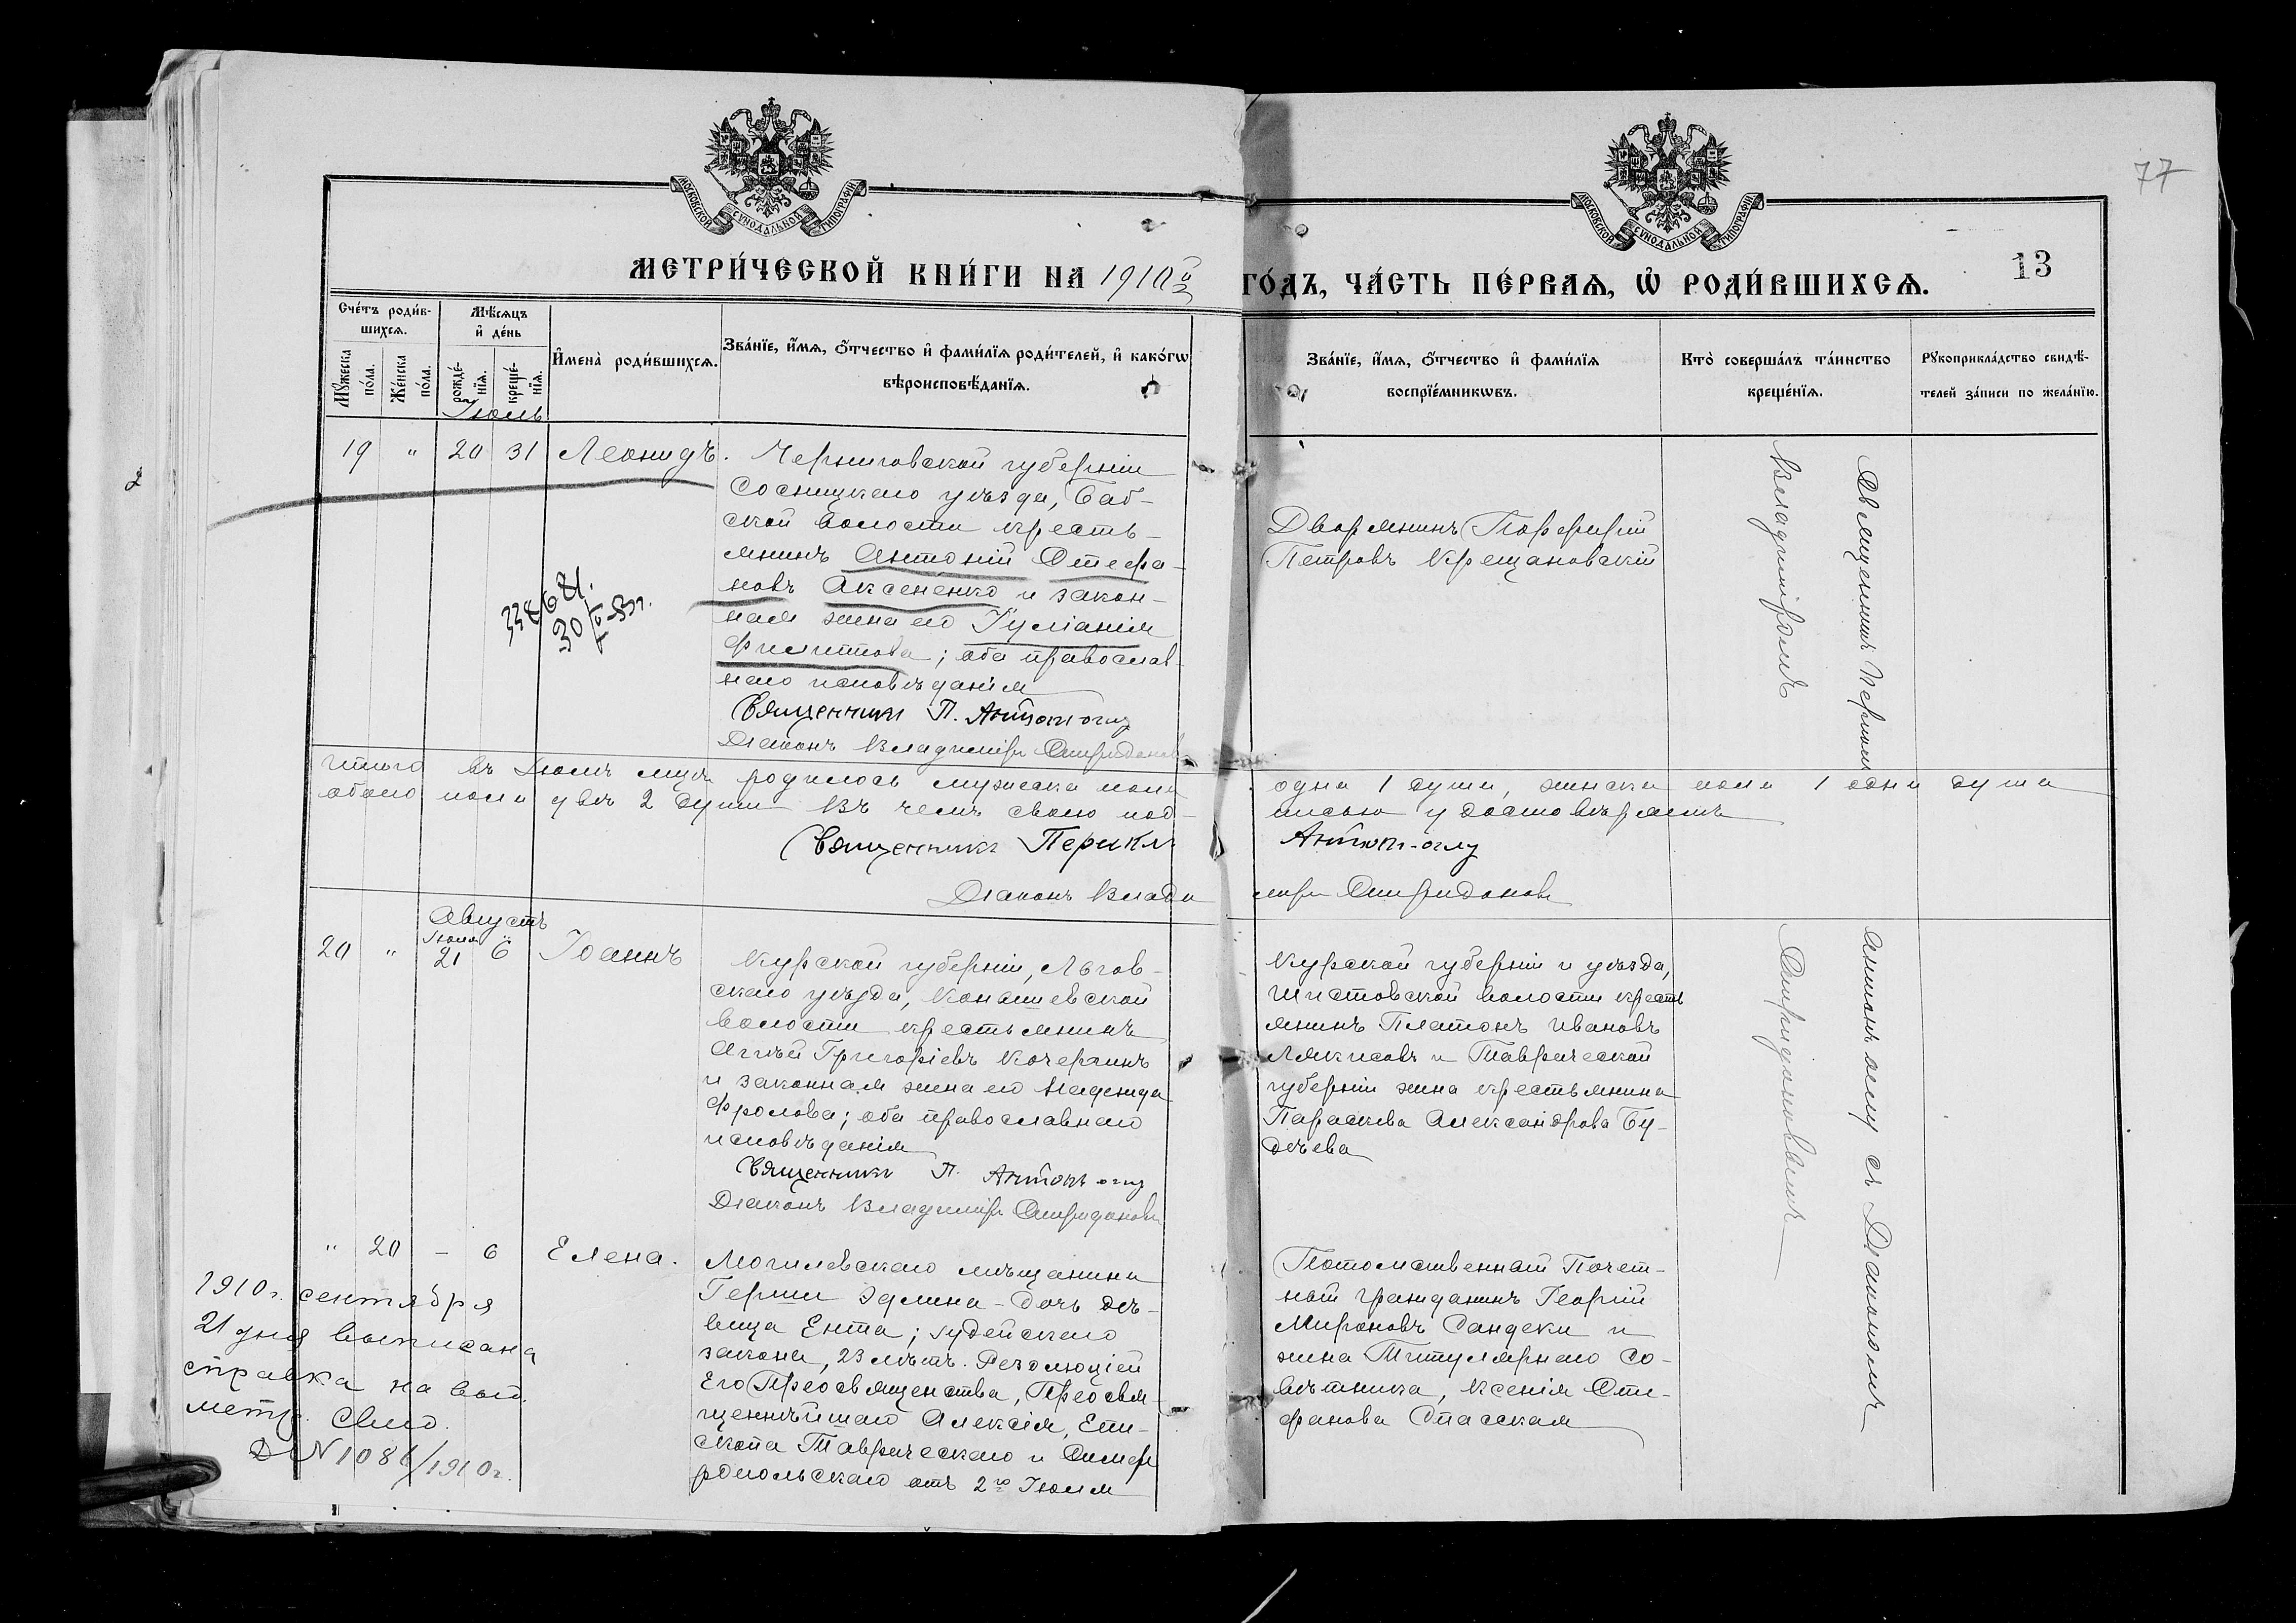 77
13
МОСКОВСКОЙ СУНОДАЛЬНОЙ ТИПОГРАФІИ
МОСКОВСКОЙ СУНОДАЛЬНОЙ ТИПОГРАФІИ
МЕТРИ́ЧЕСКОЙ КНИ́ГИ НА 1910й
ГО́ДЪ, ЧА́СТЬ ПЕ́РВАѦ, Ѡ҆ РОДИ́ВШИХСѦ.
Сче́тъ роди́в-
шихсѧ.
Мꙋ́жеска
по́ла.
Же́нска
по́ла.
Мѣ́сѧцъ
и҆ де́нь
рожде́-
нїѧ.
креще́-
нїѧ.
И҆мена̀ роди́вшихсѧ.
Зва́нїе, и҆́мѧ, ѻ҆́тчество и҆ фами́лїѧ роди́телей, и҆ како́гѡ
вѣроисповѣ́данїѧ.
Зва́нїе, и҆́мѧ, ѻ҆́тчество и҆ фами́лїѧ
воспрїе́мникѡвъ.
Кто̀ соверша́лъ та́инство
креще́нїѧ.
Рꙋкоприкла́дство свидѣ́-
телей за́писи по жела́нїю.
Іюль
19 " 20 31 Леонидъ.
Черниговской губерніи
Сосницкаго уѣзда, Баб-
ской волости кресть-
янинъ Антоній Стефа-
новъ Аксененко и закон-
ная жена его Іуліанія
Филиппова; оба православ-
наго исповѣданія
Священникъ П. Антонъ оглу
Діаконъ Владиміръ Спиридоновъ
Дворянинъ Порфирій
Петровъ Крещановскій
Священникъ Периклъ
Владиміромъ
Итого въ Іюлѣ мцѣ родилось мужска пола
одна 1 душа, женска пола 1 одна душа
обоего пола двѣ 2 души въ чемъ своею под-
писью удостовѣряемъ
Священникъ Периклъ
Антонъ-оглу
Діаконъ Влади
міръ Спиридоновъ
Августъ
Іюля
20 " 21 6 Іоаннъ
Курской губерніи, Льгов-
скаго уѣзда, Конышевской
волости крестьянинъ
Аггѣй Григоріевъ Кочергинъ
и законная жена его Надежда
Фролова; оба православнаго
исповѣданія
Священникъ П. Антонъ оглу
Діаконъ Владиміръ Спиридоновъ
Курской губерніи и уѣзда,
волости кресть
янинъ Платонъ Ивановъ
и Таврической
губерніи жена крестьянина
Параскева Александрова Бу-
дчева
Антонъ оглу съ Діакономъ
Спиридоновымъ
" 20 - 6 Елена.
Могилевскаго мѣщанина
Герши Эдлина - дочь дѣ-
вица Ента; іудейскаго
закона, 23 лѣтъ. Резолюціей
Его Преосвященства, Преосвя-
щеннѣйшаго Алексія, Епи-
скопа Таврическаго и Симфе
ропольскаго отъ 2го Іюля
Потомственный Почет-
ный гражданинъ Георгій
Мироновъ Сандеки и
жена Титулярнаго Со-
вѣтника, Ксенія Сте-
фанова Спасская
1910 г. сентября
21 дня выписана
справка на выд.
метр. свид.
№ 1086/1910 г.